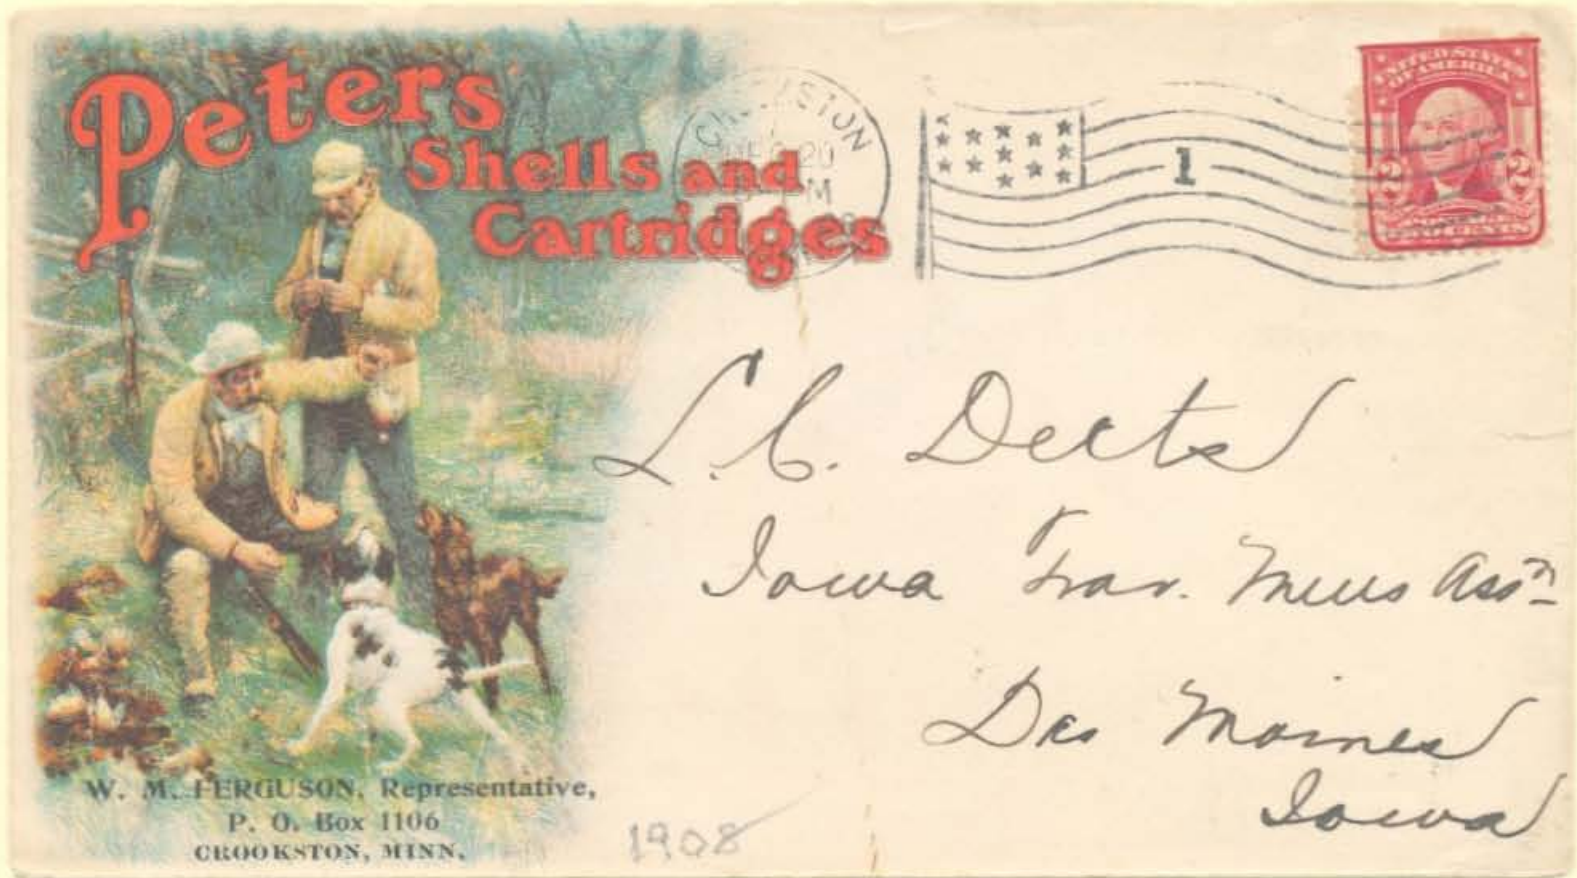 Peters
Shells and
Cartridges
UNITED STATES
OF AMERICA
2 2
1
L. C. Deets
Iowa Trav. Mens Assn
Des Moines
Iowa
W. M. FERGUSON, Representative,
P. O. Box 1106
CROOKSTON, MINN.
1908